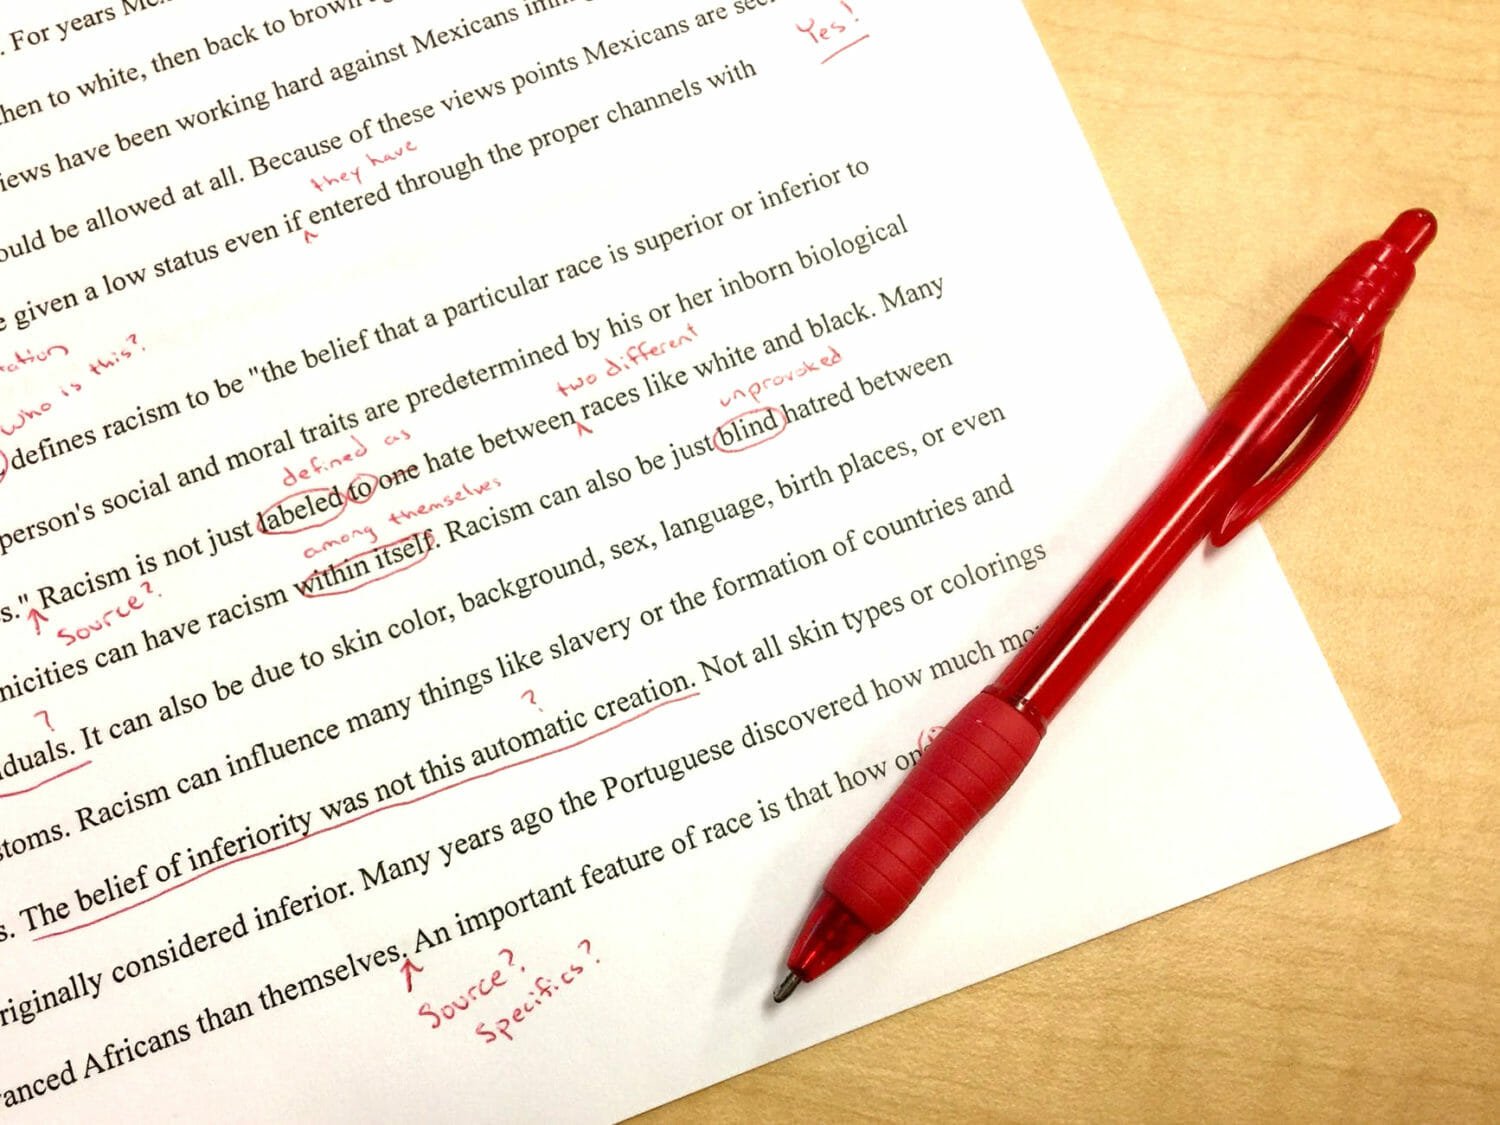 . For years
Yes!
then to white, then back to brown
views have been working hard against Mexicans
ould be allowed at all. Because of these views points Mexicans are
they have
given a low status even if ^ entered through the proper channels with
who is this?
defines racism to be "the belief that a particular race is superior or inferior to
person's social and moral traits are predetermined by his or her inborn biological
defined as
two different
s." Racism is not just labeled to one hate between ^ races like white and black. Many
Source?
among themselves
unprovoked
nicities can have racism within itself. Racism can also be just blind hatred between
?
duals. It can also be due to skin color, background, sex, language, birth places, or even
stoms. Racism can influence many things like slavery or the formation of countries and
?
s. The belief of inferiority was not this automatic creation. Not all skin types or colorings
riginally considered inferior. Many years ago the Portuguese discovered how much
anced Africans than themselves. An important feature of race is that how
Source?
Specifics?